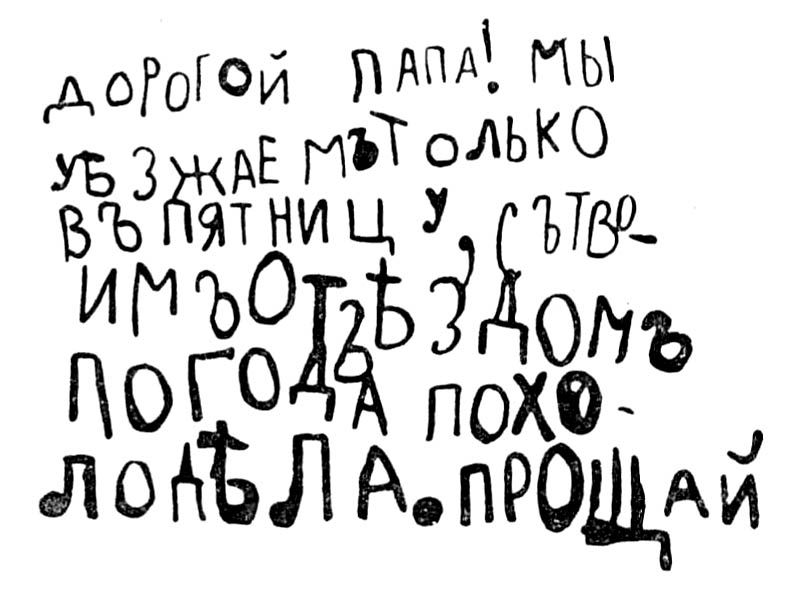 ДОРОГОЙ ПАПА! МЫ
УБЗЖАЕМЪ ТОЛЬКО
ВЪ ПЯТНИЦУ, СЪ ТВО-
ИМЪ ОТЪѢЗДОМЪ
ПОГОДА ПОХО-
ЛОДѢЛА. ПРОЩАЙ